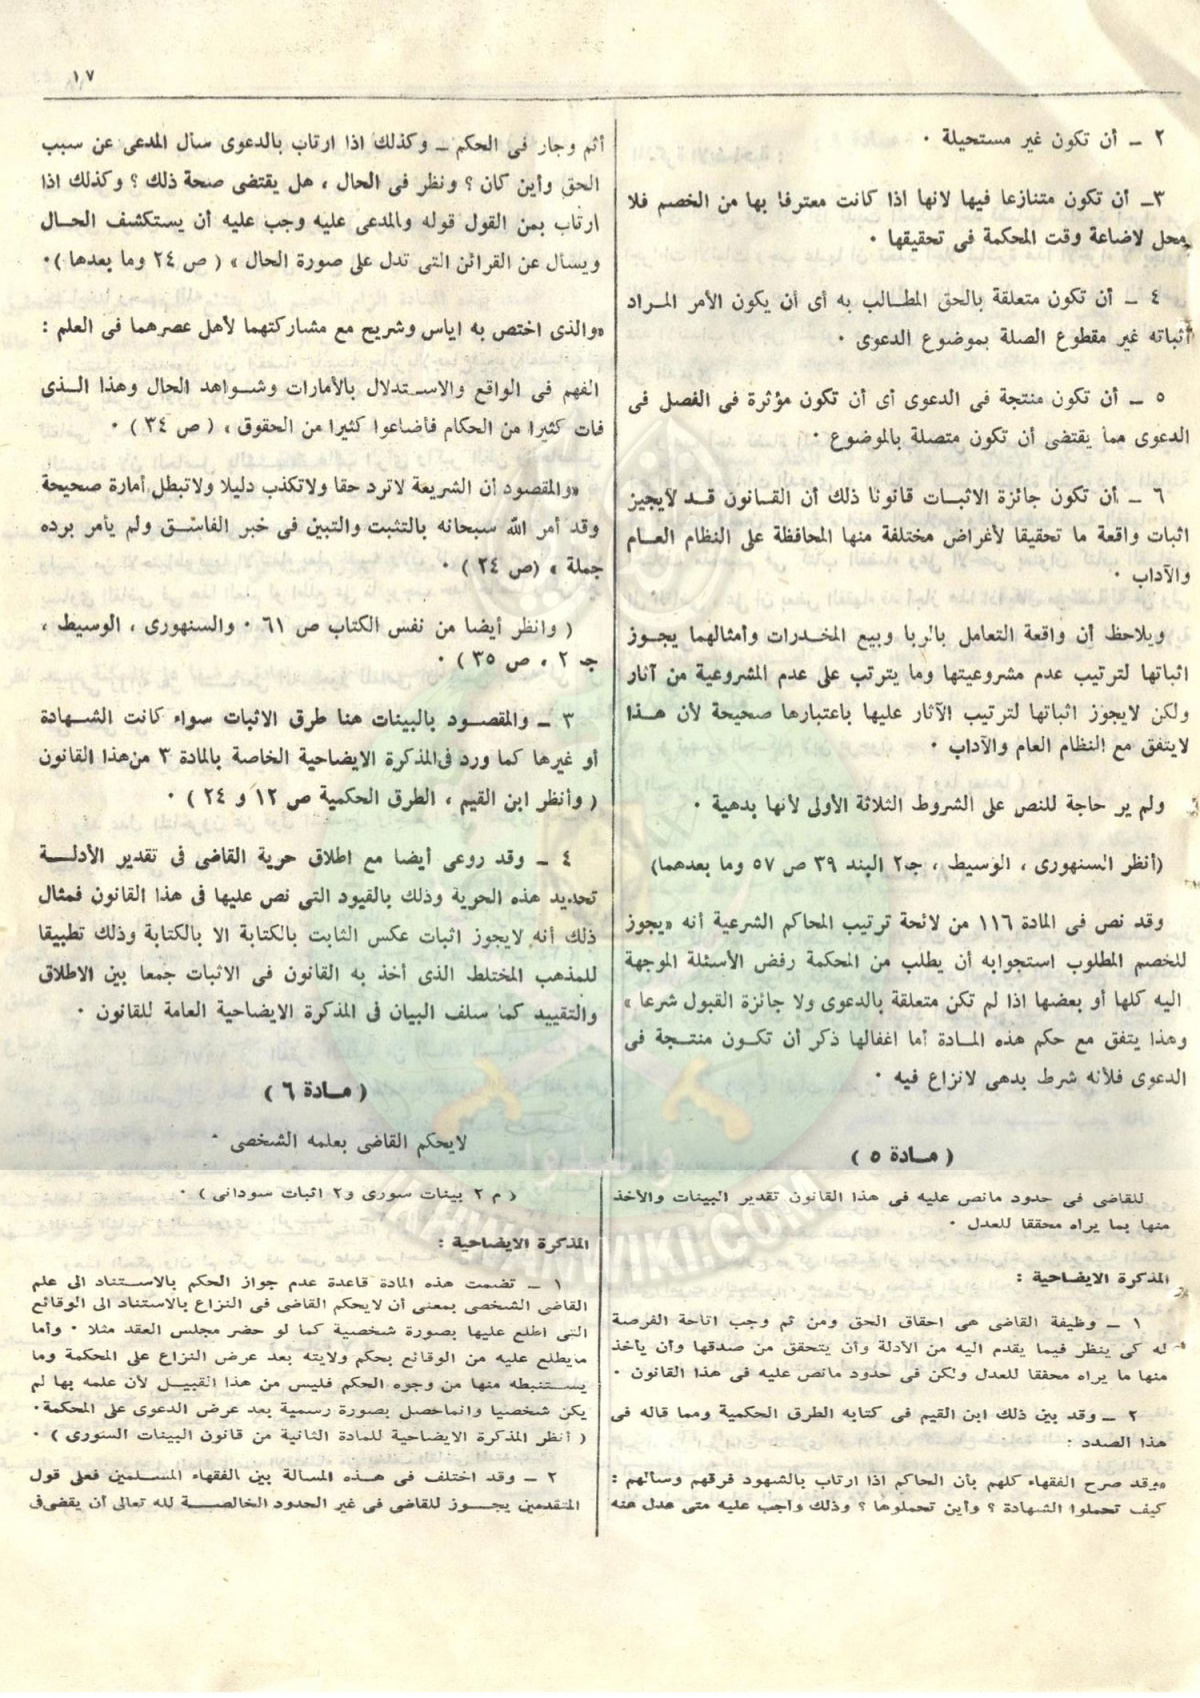 ١٧
٢ ـ أن تكون غير مستحيلة ٠
٣ـ أن تكون متنازعا فيها لانها اذا كانت معترفا بها من الخصم فلا
محل لاضاعة وقت المحكمة فى تحقيقها ٠
٤ ـ أن تكون متعلقة بالحق المطالب به أى أن يكون الأمر المراد
أثباته غير مقطوع الصلة بموضوع الدعوى ٠
٥ ـ أن تكون منتجة فى الدعوى أى أن تكون مؤثرة فى الفصل فى
الدعوى مما يقتضى أن تكون متصلة بالموضوع ٠
٦ ـ أن تكون جائزة الاثبات قانونا ذلك أن القانون قد لايجيز
اثبات واقعة ما تحقيقا لأغراض مختلفة منها المحافظة على النظام العام
والآداب ٠
ويلاحظ أن واقعة التعامل بالربا وبيع المخدرات وأمثالهما يجوز
اثباتها لترتيب عدم مشروعيتها وما يترتب على عدم المشروعية من آثار
ولكن لايجوز اثباتها لترتيب الآثار عليها باعتبارها صحيحة لأن هذا
لايتفق مع النظام العام والآداب ٠
ولم ير حاجة للنص على الشروط الثلاثة الأولى لأنها بدهية ٠
(أنظر السنهورى ، الوسيط ، جـ٢ البند ٣٩ ص ٥٧ وما بعدهما)
وقد نص فى المادة ١١٦ من لائحة ترتيب المحاكم الشرعية أنه «يجوز
للخصم المطلوب استجوابه أن يطلب من المحكمة رفض الأسئلة الموجهة
اليه كلها أو بعضها اذا لم تكن متعلقة بالدعوى ولا جائزة القبول شرعا »
وهذا يتفق مع حكم هذه المادة أما اغفالها ذكر أن تكون منتجة فى
الدعوى فلأنه شرط بدهى لانزاع فيه ٠
( مادة ٥ )
للقاضى فى حدود مانص عليه فى هذا القانون تقدير البينات والأخذ
منها بما يراه محققا للعدل ٠
المذكرة الايضاحية :
١ ـ وظيفة القاضى هى احقاق الحق ومن ثم وجب اتاحة الفرصة
له كى ينظر فيما يقدم اليه من الأدلة وأن يتحقق من صدقها وأن يأخذ
منها ما يراه محققا للعدل ولكن فى حدود مانص عليه فى هذا القانون ٠
٢ ـ وقد بين ذلك ابن القيم فى كتابه الطرق الحكمية ومما قاله فى
هذا الصدد :
«وقد صرح الفقهاء كلهم بأن الحاكم اذا ارتاب بالشهود فرقهم وسألهم :
كيف تحملوا الشهادة ؟ وأين تحملوها ؟ وذلك واجب عليه متى عدل عنه
أثم وجار فى الحكم ـ وكذلك اذا ارتاب بالدعوى سأل المدعى عن سبب
الحق وأين كان ؟ ونظر فى الحال ، هل يقتضى صحة ذلك ؟ وكذلك اذا
ارتاب بمن القول قوله والمدعى عليه وجب عليه أن يستكشف الحال
ويسأل عن القرائن التى تدل على صورة الحال » ( ص ٢٤ وما بعدها )٠
«والذى اختص به اياس وشريح مع مشاركتهما لأهل عصرهما فى العلم :
الفهم فى الواقع والاستدلال بالأمارات وشواهد الحال وهذا الذى
فات كثيرا من الحكام فأضاعوا كثيرا من الحقوق » ( ص ٣٤ ) ٠
«والمقصود أن الشريعة لاترد حقا ولاتكذب دليلا ولاتبطل أمارة صحيحة
وقد أمر الله سبحانه بالتثبت والتبين فى خبر الفاسق ولم يأمر برده
جملة » (ص ٢٤ ) ٠
( وانظر أيضا من نفس الكتاب ص ٦١ ٠ والسنهورى ، الوسيط ،
جـ ٢ ، ص ٣٥ ) ٠
٣ ـ والمقصود بالبينات هنا طرق الاثبات سواء كانت الشهادة
أو غيرها كما ورد فى المذكرة الايضاحية الخاصة بالمادة ٣ من هذا القانون
( وأنظر ابن القيم ، الطرق الحكمية ص ١٢ و ٢٤ ) ٠
٤ ـ وقد روعى أيضا مع اطلاق حرية القاضى فى تقدير الأدلة
تحديد هذه الحرية وذلك بالقيود التى نص عليها فى هذا القانون فمثال
ذلك أنه لايجوز اثبات عكس الثابت بالكتابة الا بالكتابة وذلك تطبيقا
للمذهب المختلط الذى أخذ به القانون فى الاثبات جمعا بين الاطلاق
والتقييد كما سلف البيان فى المذكرة الايضاحية العامة للقانون ٠
( مادة ٦ )
لايحكم القاضى بعلمه الشخصى ٠
( م ٢ بينات سورى و٢ اثبات سودانى ) ٠
المذكرة الايضاحية :
١ ـ تضمنت هذه المادة قاعدة عدم جواز الحكم بالاستناد الى علم
القاضى الشخصى بمعنى أن لايحكم القاضى فى النزاع بالاستناد الى الوقائع
التى اطلع عليها بصورة شخصية كما لو حضر مجلس العقد مثلا ٠ وأما
مايطلع عليه من الوقائع بحكم ولايته بعد عرض النزاع على المحكمة وما
يستنبطه منها من وجوه الحكم فليس من هذا القبيل لأن علمه بها لم
يكن شخصيا وانماحصل بصورة رسمية بعد عرض الدعوى على المحكمة٠
( أنظر المذكرة الايضاحية للمادة الثانية من قانون البينات السورى ) ٠
٢ ـ وقد اختلف فى هذه المسالة بين الفقهاء المسلمين فعلى قول
المتقدمين يجوز للقاضى فى غير الحدود الخالصة لله تعالى أن يقضى فى